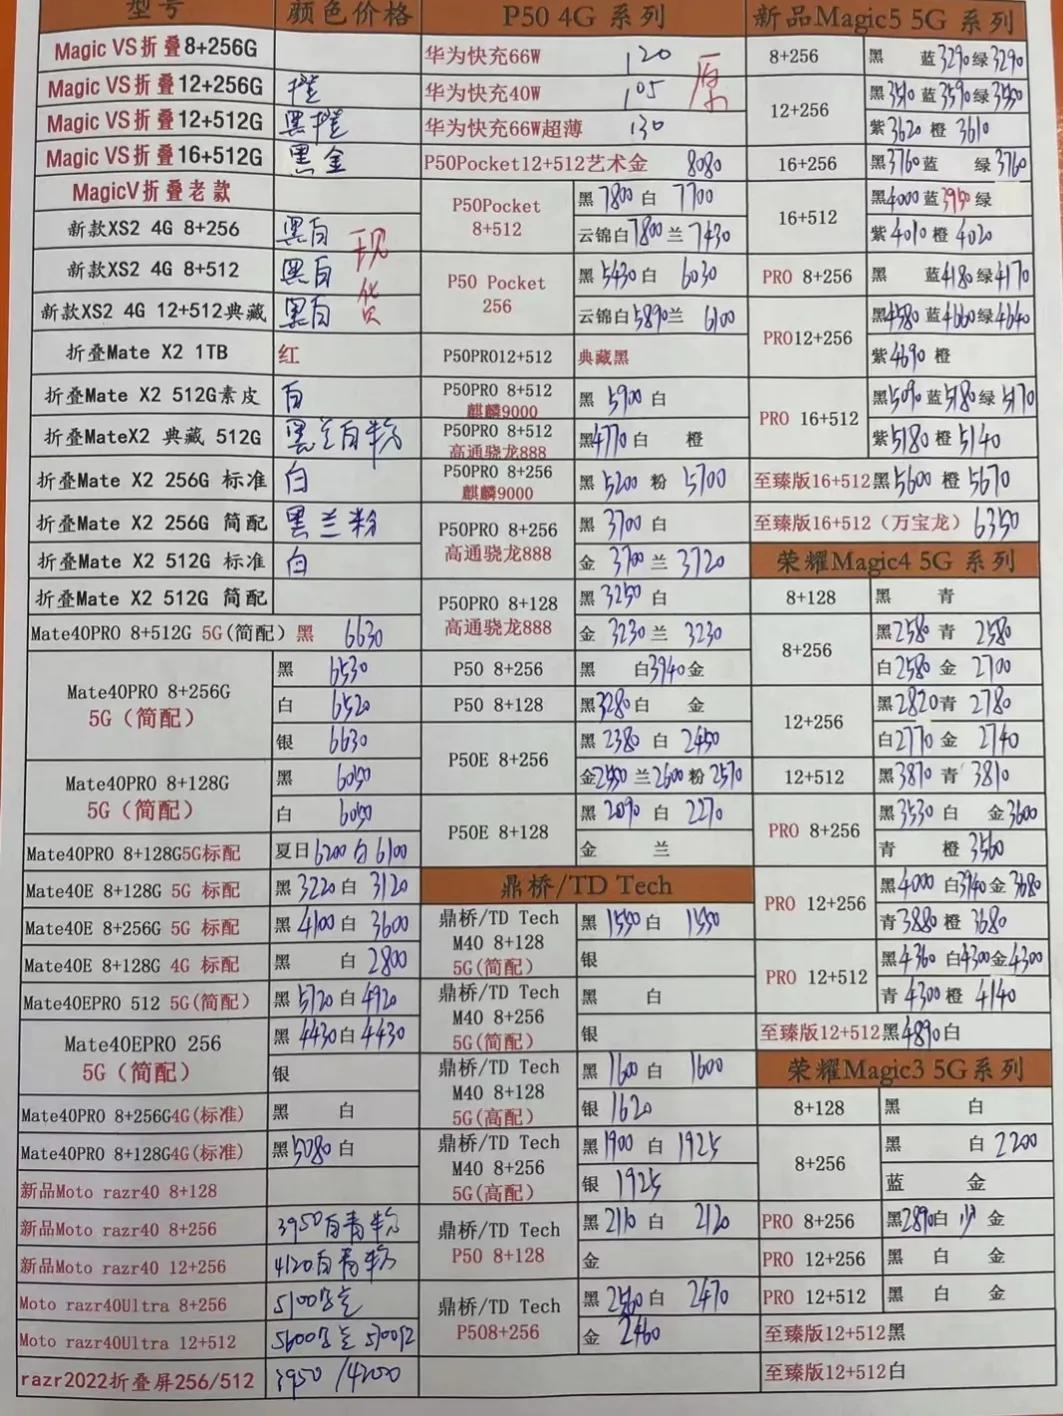 型号 颜色价格
Magic VS折叠8+256G
Magic VS折叠12+256G 橙
Magic VS折叠12+512G 黑橙
Magic VS折叠16+512G 黑金
MagicV折叠老款
新款XS2 4G 8+256 黑白
新款XS2 4G 8+512 黑白
新款XS2 4G 12+512典藏 黑白
现货
折叠Mate X2 1TB 红
折叠Mate X2 512G素皮 白
折叠MateX2 典藏 512G 黑兰白粉
折叠Mate X2 256G 标准 白
折叠Mate X2 256G 简配 黑兰粉
折叠Mate X2 512G 标准 白
折叠Mate X2 512G 简配
Mate40PRO 8+512G 5G(简配) 黑 6630
Mate40PRO 8+256G
5G（简配）
黑 6530
白 6520
银 6630
Mate40PRO 8+128G
5G（简配）
黑 6050
白 6050
Mate40PRO 8+128G5G标配 夏日6200白6100
Mate40E 8+128G 5G 标配 黑3220白 3120
Mate40E 8+256G 5G 标配 黑4100白 3600
Mate40E 8+128G 4G 标配 黑 白2800
Mate40EPRO 512 5G(简配) 黑5720白4920
Mate40EPRO 256
5G（简配）
黑 4430白4430
银
Mate40PRO 8+256G4G(标准) 黑 白
Mate40PRO 8+128G4G(标准) 黑5080白
新品Moto razr40 8+128
新品Moto razr40 8+256 3950白青粉
新品Moto razr40 12+256 4120白青粉
Moto razr40Ultra 8+256 5100
Moto razr40Ultra 12+512 5600 5700红
razr2022折叠屏256/512 3950 /4200
P50 4G 系列
华为快充66W 120
华为快充40W 105
华为快充66W超薄 130
原
P50Pocket12+512艺术金 8080
P50Pocket
8+512
黑 7800白 7700
云锦白7800兰7430
P50 Pocket
256
黑 5430白 6030
云锦白5890兰 6100
P50PRO12+512 典藏黑
P50PRO 8+512
麒麟9000
黑 5900白
P50PRO 8+512
高通骁龙888
黑4770白 橙
P50PRO 8+256
麒麟9000
黑 5200 粉 5700
P50PRO 8+256
高通骁龙888
黑 3700白
金 3700兰 3720
P50PRO 8+128
高通骁龙888
黑 3250白
金 3230兰 3230
P50 8+256 黑 白3940金
P50 8+128 黑3280白 金
P50E 8+256
黑 2380 白 2450
金2550兰2600粉2570
P50E 8+128
黑 2090 白 2270
金 兰
鼎桥/TD Tech
鼎桥/TD Tech
M40 8+128
5G(简配)
黑 1550白 1550
银
鼎桥/TD Tech
M40 8+256
5G(简配)
黑 白
银
鼎桥/TD Tech
M40 8+128
5G(高配)
黑 1600 白 1600
银 1620
鼎桥/TD Tech
M40 8+256
5G(高配)
黑1900 白 1925
银 1925
鼎桥/TD Tech
P50 8+128
黑2110 白 2120
金
鼎桥/TD Tech
P508+256
黑 2560白 2470
金 2460
新品Magic5 5G 系列
8+256 黑 蓝3290绿3290
12+256
黑3510蓝3590绿3550
紫3620 橙 3610
16+256 黑3760蓝 绿3760
16+512
黑4000蓝3950绿
紫4010橙 4020
PRO 8+256 黑 蓝4180绿4170
PRO12+256
黑4580蓝4660绿4640
紫4690 橙
PRO 16+512
黑5090蓝5180绿5170
紫5180橙5140
至臻版16+512黑5600 橙5670
至臻版16+512（万宝龙）6350
荣耀Magic4 5G 系列
8+128 黑 青
8+256
黑2580青 2580
白2580金 2700
12+256
黑2820青 2780
白2770金 2740
12+512 黑3870青 3810
PRO 8+256
黑3530白 金3600
青 橙3560
PRO 12+256
黑4000 白3940金3680
青3880橙 3680
PRO 12+512
黑4360 白4300金4300
青 4300橙 4140
至臻版12+512黑4890白
荣耀Magic3 5G系列
8+128 黑 白
8+256
黑 白2200
蓝 金
PRO 8+256 黑2890白 少 金
PRO 12+256 黑 白 金
PRO 12+512 黑 白 金
至臻版12+512黑
至臻版12+512白